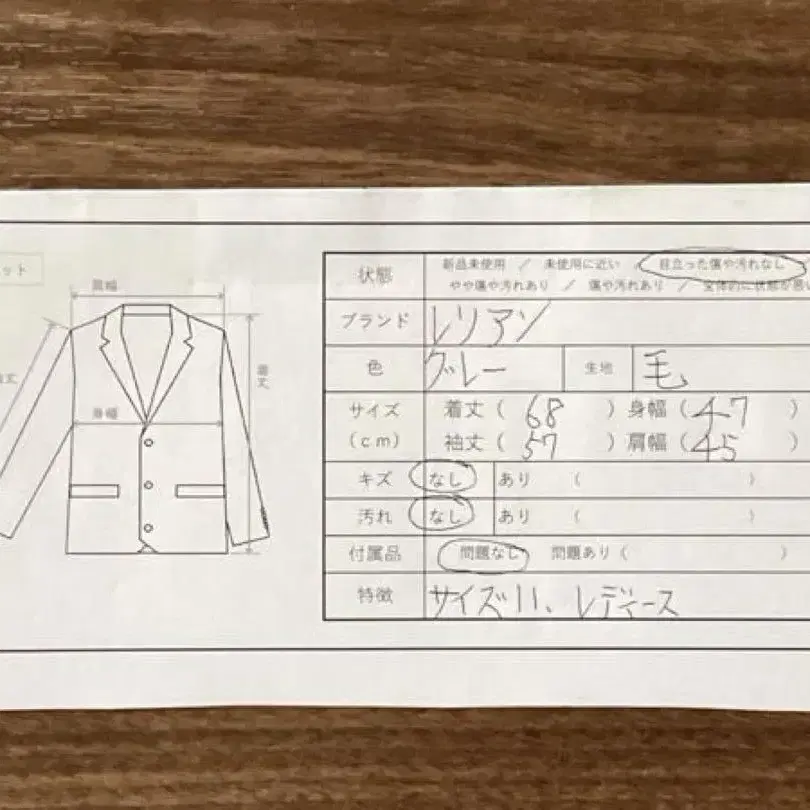 ット
肩幅
着丈
丈
身幅
状態 新品未使用 / 未使用に近い / 目立った傷や汚れなし /
やや傷や汚れあり / 傷や汚れあり / 全体的に状態が悪い
ブランド レリアン
色 グレー 生地 毛
サイズ 着丈( 68 ) 身幅( 47 )
(cm) 袖丈( 57 ) 肩幅( 45 )
キズ なし あり ( )
汚れ なし あり ( )
付属品 問題なし 問題あり( )
特徴 サイズ11、レディース